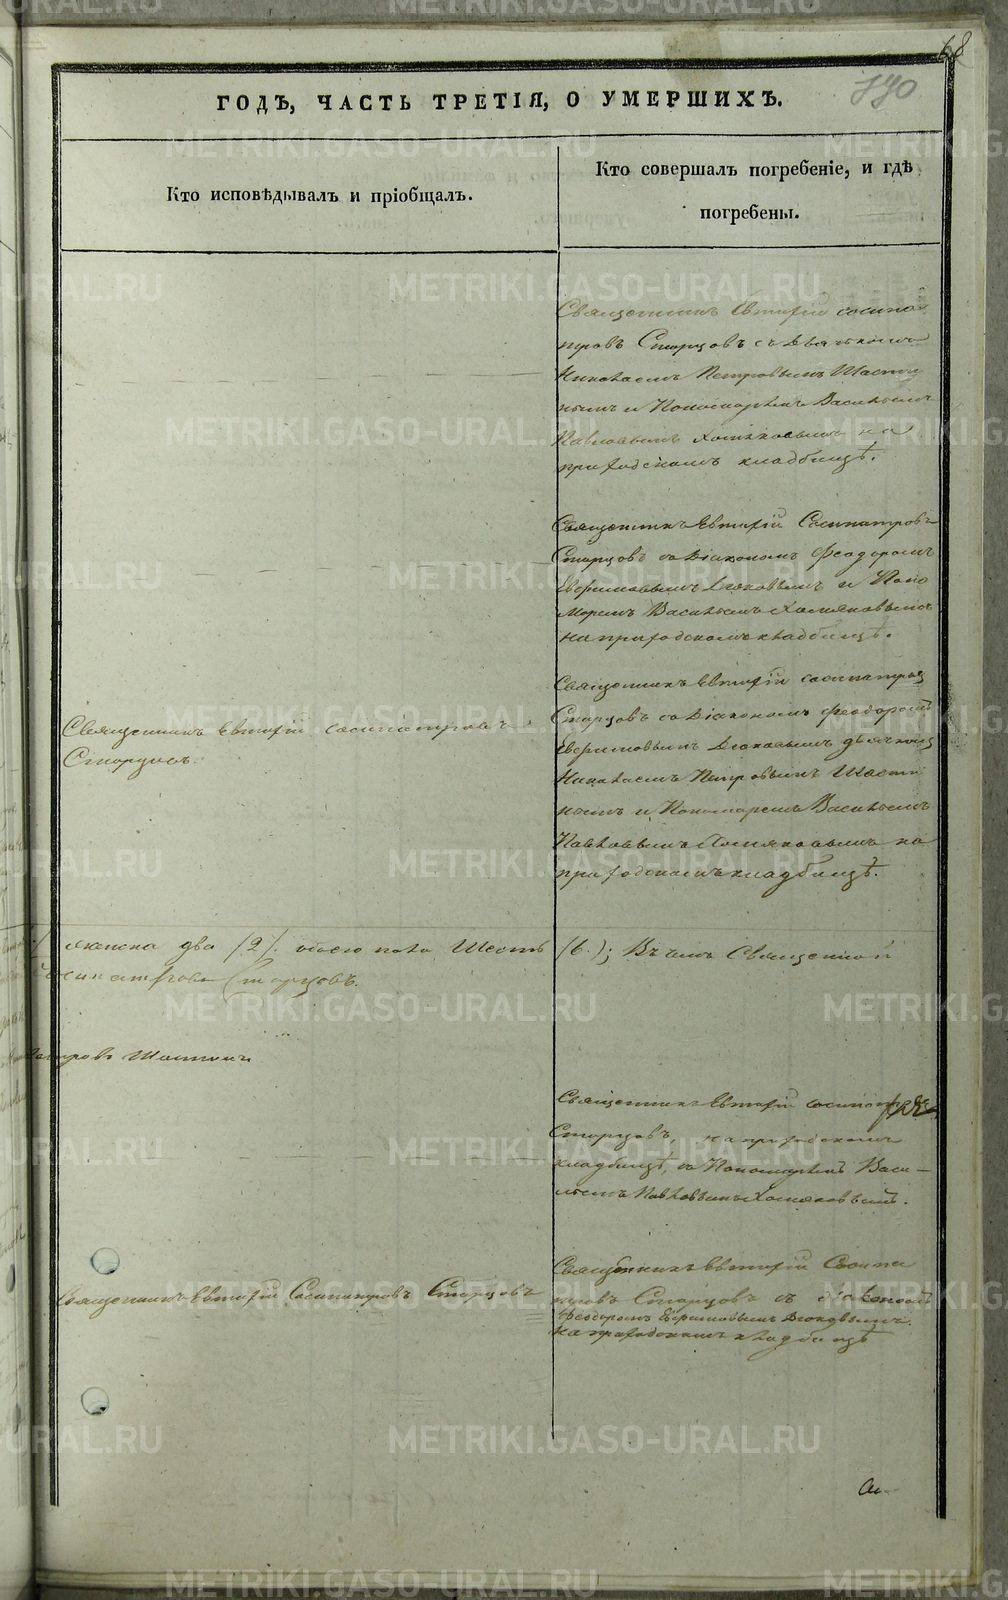 68
770
ГОДЪ, ЧАСТЬ ТРЕТІЯ, О УМЕРШИХЪ.
Кто исповѣдывалъ и пріобщалъ.
Кто совершалъ погребеніе, и гдѣ
погребены.
Священникъ Евтихій Сосипат
ровъ Старцовъ съ Дьячкомъ
Николаемъ Петровымъ Шасти
нымъ и Пономаремъ Васильемъ
Павловымъ Хомяковымъ на
приходскомъ кладбищѣ.
Священникъ Евтихій Сосипатровъ
Старцовъ съ Діакономъ Феодоромъ
и Поно
маремъ Васильемъ Хомяковымъ
на приходскомъ кладбищѣ.
Священникъ Евтихій Сосипатровъ
Старцовъ.
Священникъ Евтихій Сосипатров
Старцовъ съ Діакономъ Феодоромъ
дьячкомъ
Николаемъ Петровымъ Шасти
нымъ и Пономаремъ Васильемъ
Павловымъ Хомяковымъ на
приходскомъ кладбищѣ.
женска два (2). обоего пола Шесть (6.); Въ чемъ Священной
Сосипатровъ Старцовъ.
Петровъ Шастинъ
Священникъ Евтихій Сосипатровъ
Старцовъ, на приходскомъ
кладбищѣ, съ Пономаремъ Васи-
льемъ Павловымъ Хомяковымъ.
Священникъ Евтихій Сосипатровъ Старцовъ
Священникъ Евтихій Сосипа
тровъ Старцовъ съ діакономъ
Феодоромъ
на приходскомъ кладбищѣ
METRIKI.GASO-URAL.RU